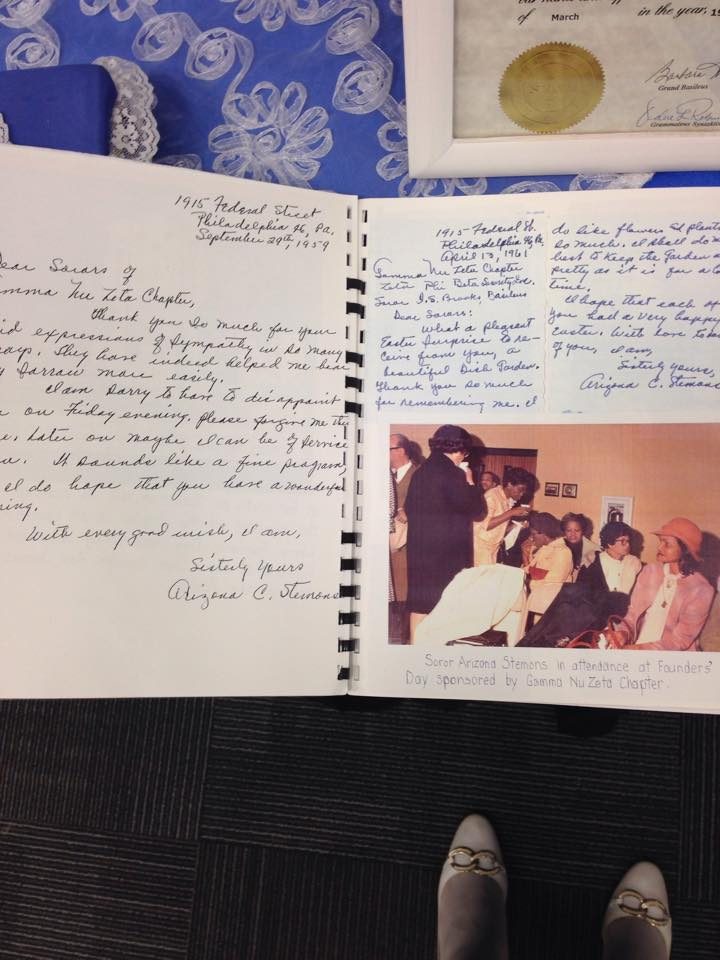 of March in the year, 19
Grand Basileus
1915 Federal Street
Philadelphia 46, Pa.
September 29th, 1959
ear Sorors of
mma Nu Zeta Chapter,
Thank you so much for your
id expressions of Sympathy in so many
ays. They have indeed helped me bear
y sorrow more easily.
I am sorry to have to disappoint
on Friday evening. Please forgive me this
e. Later on maybe I can be of service
u. It sounds like a fine program,
I do hope that you have a wonderful
ning.
With every good wish, I am,
Sisterly Yours
Arizona C. Stemons
1915 Federal St.
Philadelphia 46, Pa.
April 13, 1961
Gamma Nu Zeta Chapter
Zeta Phi Beta Sorority Inc.
Soror I.S. Brooks, Basileus
Dear Sorors:
What a pleasant
Easter Surprise to re-
ceive from you, a
beautiful Dish Garden.
Thank you so much
for remembering me. I
do like flowers & plants
so much. I shall do my
best to keep the Garden as
pretty as it is for a lo
time.
I hope that each of
you had a very happy
Easter. With love to
of you, I am,
Sisterly yours,
Arizona C. Stemons
Soror Arizona Stemons in attendance at Founders'
Day sponsored by Gamma Nu Zeta Chapter.